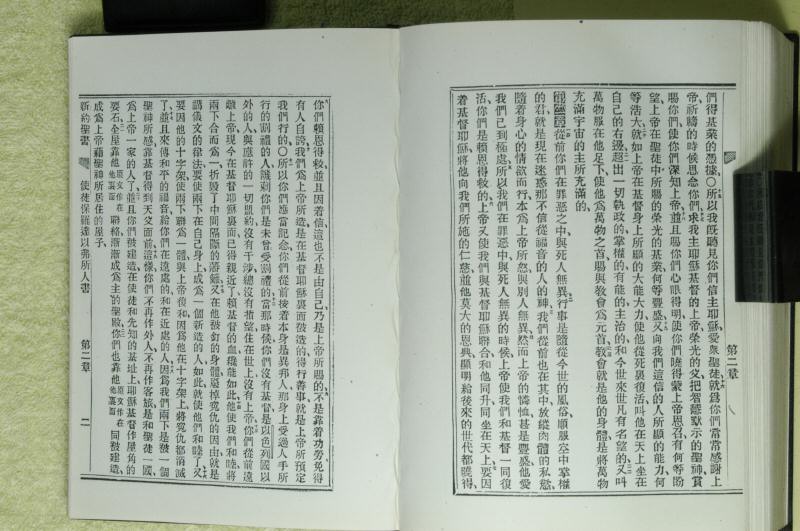 第二章
們得基業的憑據、○所以我旣聽見你們信主耶穌愛衆聖徒、就爲你們常常感謝上
帝、祈禱的時候思念你們、求我主耶穌基督的上帝、榮光的父、把智慧默示的聖神、賞
賜你們、使你們深知上帝、並且賜你們心眼得明、使你們曉得蒙上帝恩召有何等盼
望、上帝在聖徒中所賜的榮光的基業、何等豐盛、又向我們這信的人所顯的能力、何
等浩大、就如上帝在基督身上所顯的大能大力、使他從死裏復活、叫他在天上坐在
自己的右邊、超出一切執政的、掌權的、有能的、主治的、和今世來世凡有名望的、又叫
萬物服在他足下、使他爲萬物之首、賜與敎會爲元首、敎會就是他的身體、是將萬物
充滿宇宙的主所充滿的、
從前你們在罪惡之中、與死人無異、行事是隨從今世的風俗、順服空中掌權
的君、就是現在迷惑那不信從福音的人的神、我們從前也在其中、放縱肉體的私慾、
隨着身心的情欲而行、本爲上帝所忿怒、與別人無異、然而上帝的憐恤甚是豐盛、他愛
我們已到極處、所以我們在罪惡中與死人無異的時候、上帝使我們和基督一同復
活、你們是賴恩得救的、上帝又使我們與基督耶穌聯合、和他同升、同坐在天上、要因
着基督耶穌、將他向我們所施的仁慈、並他莫大的恩典、顯明給後來的世代都曉得、
你們賴恩得救、並且因着信、這也不是由自己、乃是上帝所賜的、不是靠着功勞、免得
有人自誇、我們爲上帝所造、是在基督耶穌裏面被造的、得行善事、就是上帝所預定
我們行的、○所以你們應當記念你們從前按着本身是異邦人、那身上受過人手所
行的割禮的人、譏刺你們是未曾受割禮的、當那時候、你們沒有基督、是以色列國以
外的人、與應許的一切盟約、沒有干涉、總沒有指望、住在世上沒有上帝、你們從前遠
離上帝、現今在基督耶穌裏面、已得親近了、賴基督的血、纔能如此、他使我們和睦、將
兩下合而爲一、拆毀了中間隔斷的籓籬、又在他被釘的身體、廢掉寃仇的因由、就是
講儀文的律法、要使兩下在自己身上、成爲一個新造的人、如此就使他們和睦了、又
要因他的十字架、使兩下聯爲一體、與上帝復和、因爲他在十字架上、將寃仇都消滅
了、並且來傳和平的福音、給你們在遠處的、和在近處的人、因爲我們兩下是被一個
聖神所感、靠基督得到天父面前、這樣你們不再作外人、不再作客旅、是和聖徒一國、
爲上帝一家的人了、並且你們被建造在使徒和先知的基址上、耶穌基督作屋角的
要石、全屋靠他原文作在他裏面聯絡、漸漸成爲主的聖殿、你們也靠他原文作在他裏面同被建造、
成爲上帝藉聖神所居住的屋子、
新約聖書 使徒保羅達以弗所人書 第二章 二